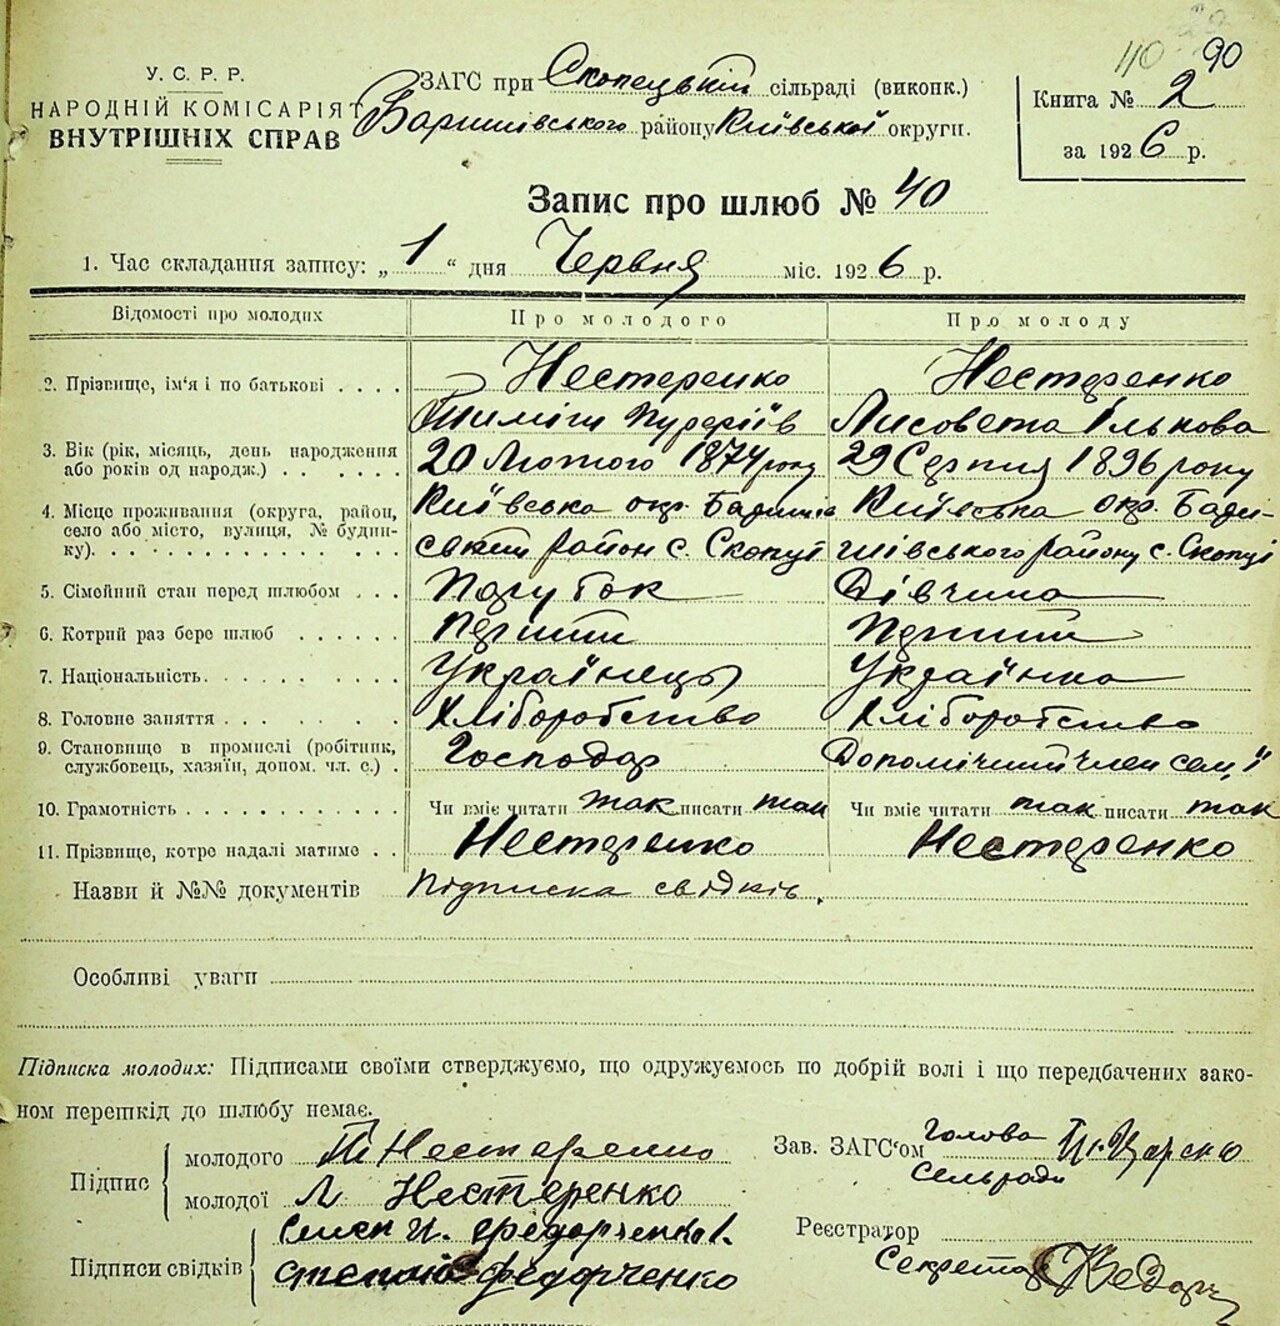 110 90
У. С. Р. Р.
НАРОДНІЙ КОМІСАРІЯТ
ВНУТРІШНІХ СПРАВ
ЗАГС при Скопецькій сільраді (виконк.)
Баришівського району Київської округи.
Книга № 2
за 1926 р.
Запис про шлюб № 40
1. Час складання запису: „1“ дня Червня міс. 1926 р.
Відомості про молодих
Про молодого
Про молоду
2. Прізвище, ім'я і по батькові
Нестеренко
Нестеренко
Лисовета Ількова
3. Вік (рік, місяць, день народження
або років од народж.)
20 Лютого 1874 року
29 Серпня 1896 року
4. Місце проживання (округа, район,
село або місто, вулиця, № будин-
ку).
Київська окр. Баришів
ський район с. Скопці
Київська окр. Бари-
шівського району с. Скопці
5. Сімейний стан перед шлюбом
Парубок
Дівчина
6. Котрий раз бере шлюб
Перший
Перший
7. Національність
Українець
Українка
8. Головне заняття
Хліборобство
Хліборобство
9. Становище в промислі (робітник,
службовець, хазяїн, допом. чл. с.)
Господар
Допомічний член семї
10. Грамотність
Чи вміє читати так писати так
Чи вміє читати так писати так
11. Прізвище, котре надалі матиме
Нестеренко
Нестеренко
Назви й №№ документів
Підписка свідків.
Особливі уваги
Підписка молодих: Підписами своїми стверджуємо, що одружуємось по добрій волі і що передбачених зако-
ном перешкід до шлюбу немає.
Підпис
молодого Т Нестеренко
молодої Л Нестеренко
Підписи свідків
Федорченко
Федорченко
Зав. ЗАГС'ом Голова
Сельради
Реєстратор
Секретар